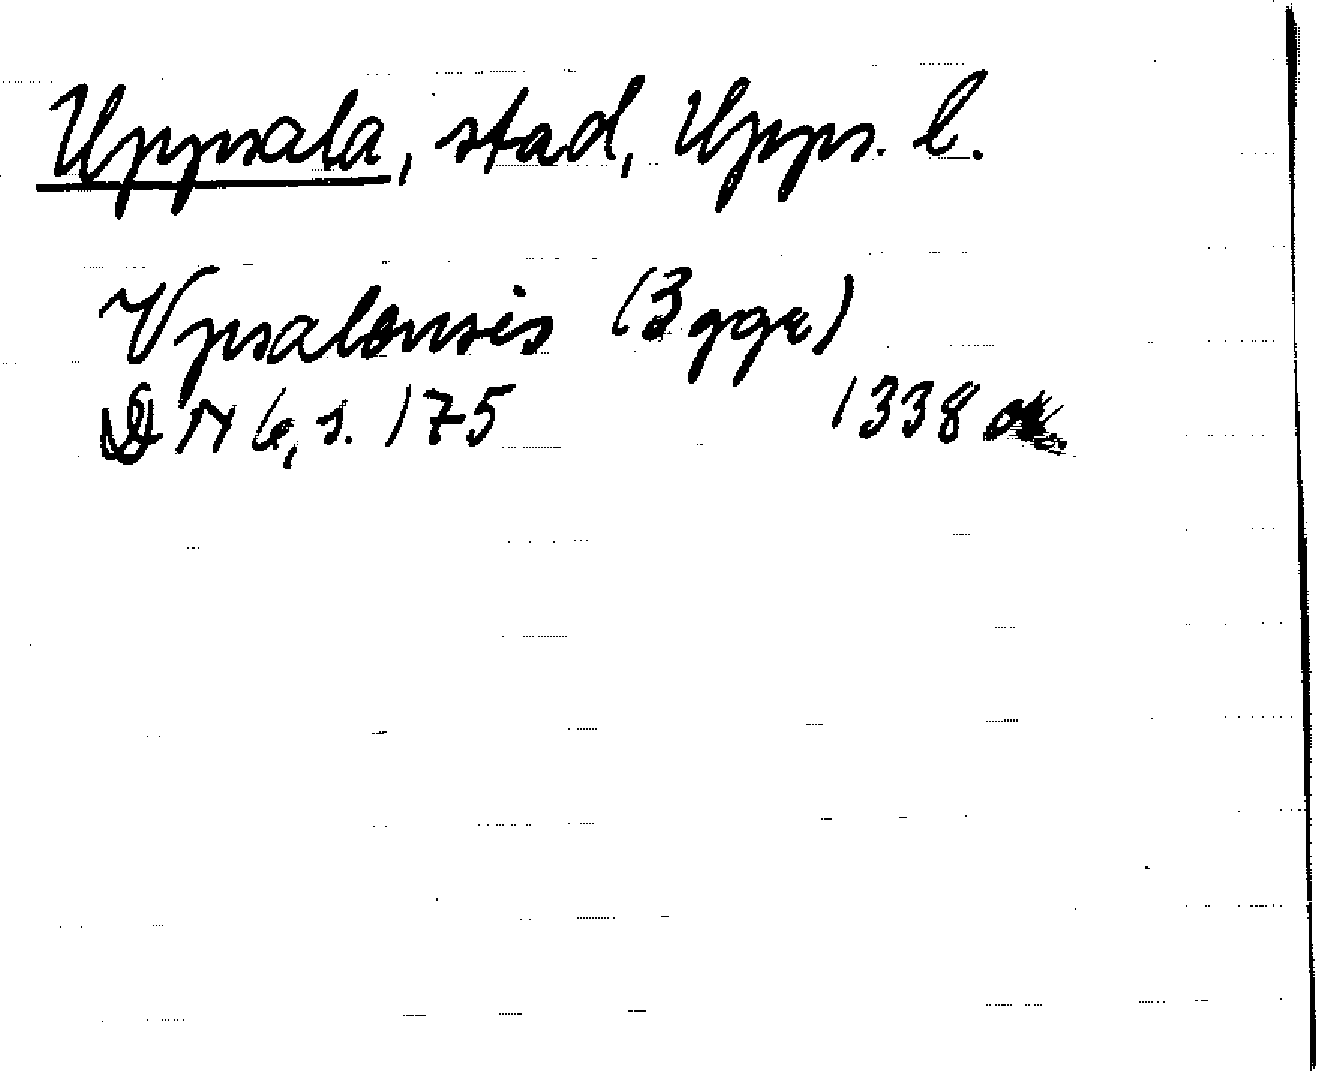 Uppsala, stad, Upps. l.
Vpsalensis (3 gge)
DN 6, s. 175 1338